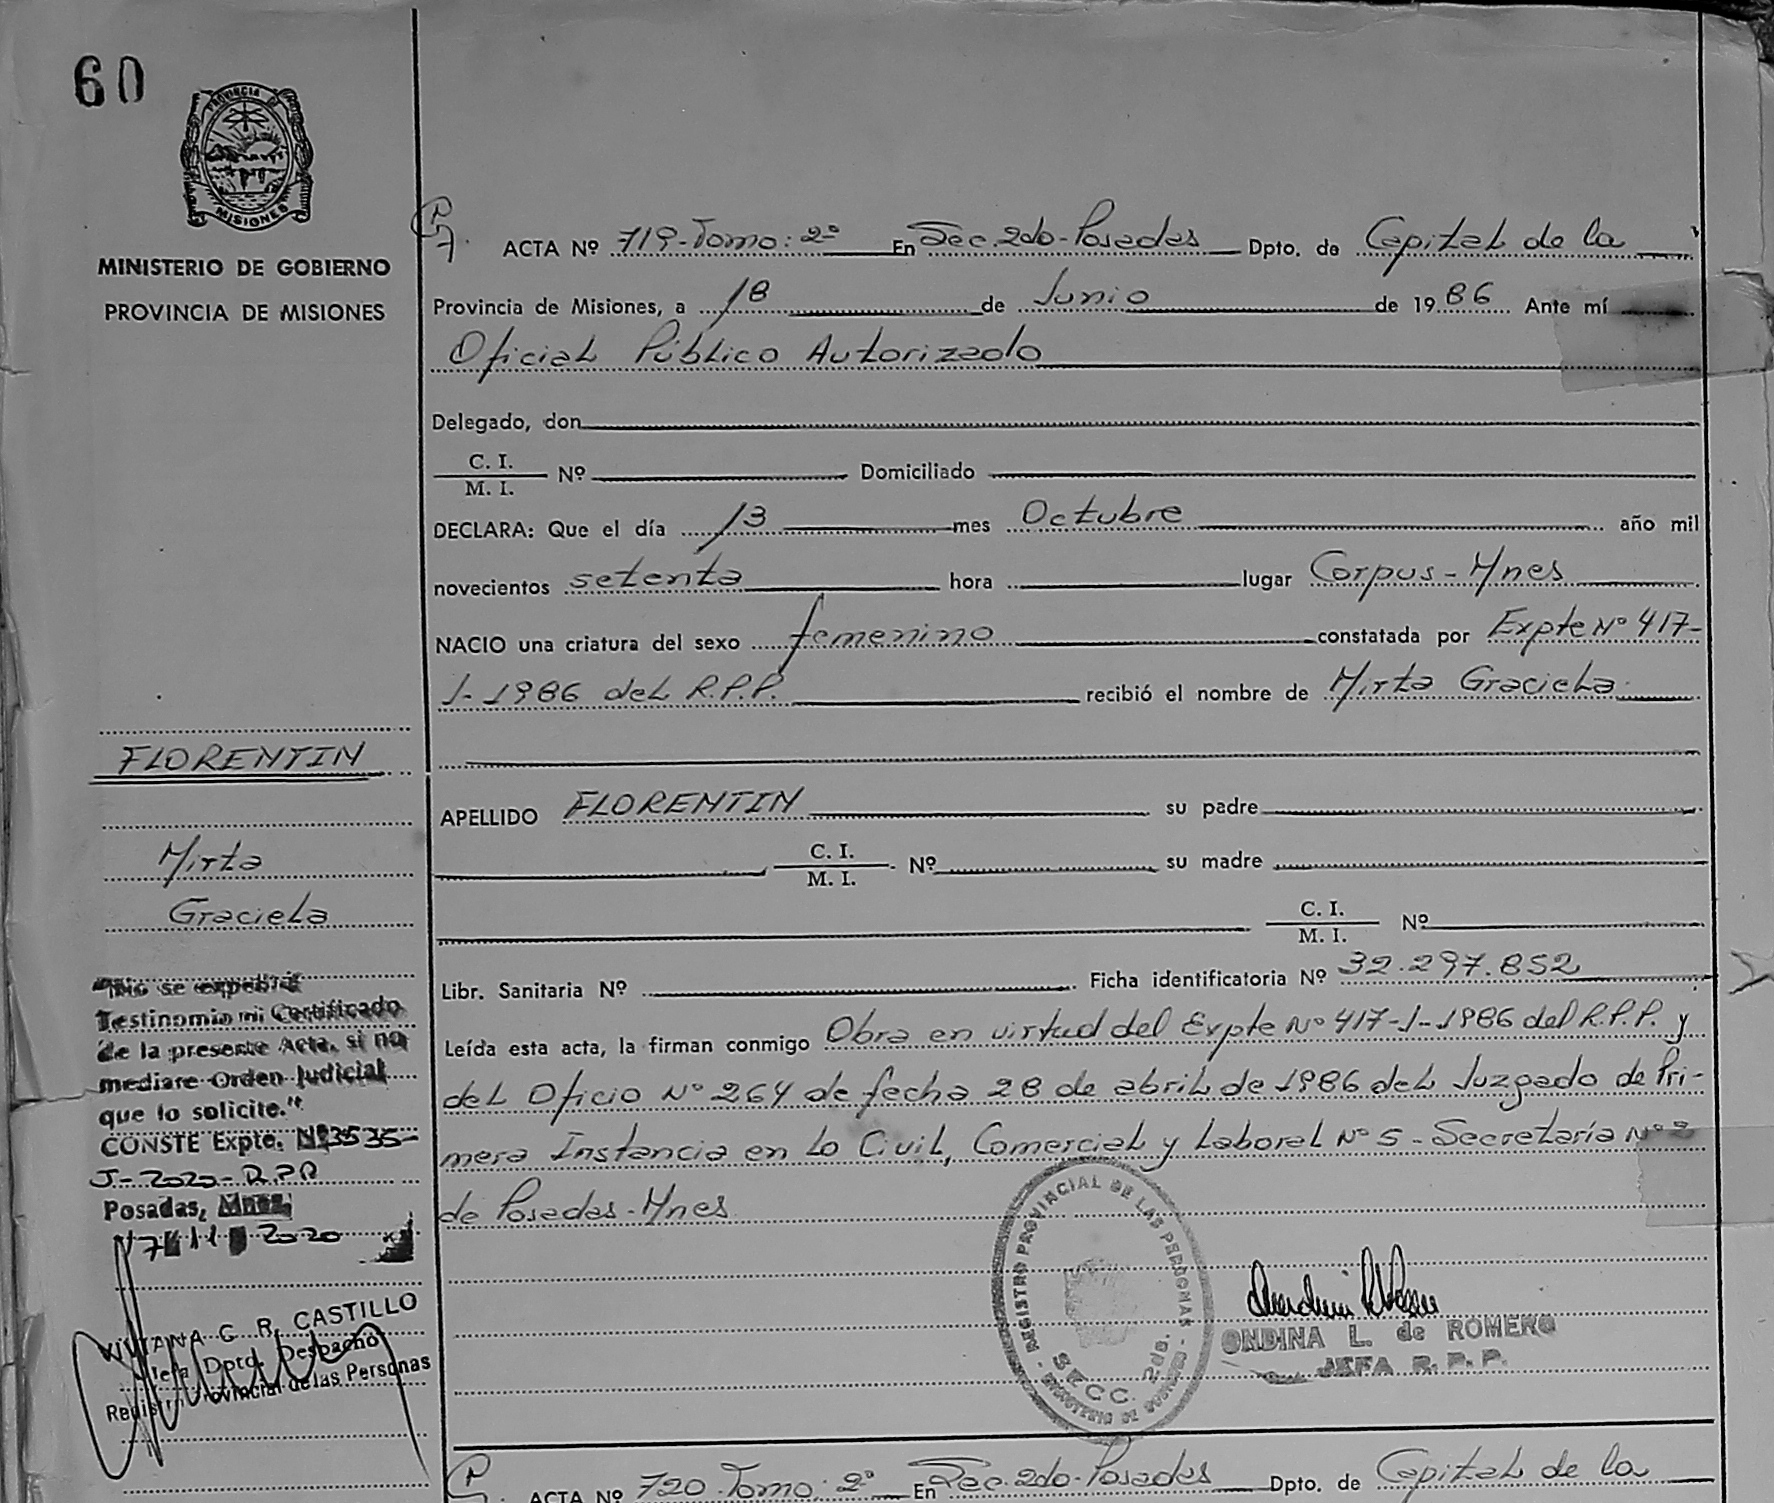 60
PROVINCIA DE
MISIONES
MINISTERIO DE GOBIERNO
PROVINCIA DE MISIONES
ACTA Nº 719-Tomo: 2º En Sec. 2do-Posadas Dpto. de Capital de la
Provincia de Misiones, a 18 de Junio de 1986 Ante mí
Oficial Público Autorizado
Delegado, don
C. I.
M. I. Nº Domiciliado
DECLARA: Que el día 13 mes Octubre año mil
novecientos setenta hora lugar Corpus-Mnes
NACIO una criatura del sexo femenino constatada por Expte Nº 417-
J-1986 del R.P.P. recibió el nombre de Mirta Graciela
APELLIDO FLORENTIN su padre
C. I.
M. I. Nº su madre
C. I.
M. I. Nº
Libr. Sanitaria Nº Ficha identificatoria Nº 32.297.852
Leída esta acta, la firman conmigo Obra en virtud del Expte Nº 417-J-1986 del R.P.P. y
del Oficio Nº 264 de fecha 28 de abril de 1986 del Juzgado de Pri-
mera Instancia en Lo Civil, Comercial y Laboral Nº 5-Secretaría Nº
de Posadas-Mnes
FLORENTIN
Mirta
Graciela
"No se expedirá
Testinomio ni Certificado
de la presente Acta, si no
mediare Orden Judicial
que lo solicite."
CONSTE Expte. Nº 3535-
J-2020-R.P.P
Posadas, Mnes.
11 2020
VIVIANA G. R. CASTILLO
Jefa Dpto. Despacho
Registro Provincial de las Personas
REGISTRO PROVINCIAL DE LAS PERSONAS
SECC. 2da.
MINISTERIO DE GOBIERNO
ONDINA L. de ROMERO
JEFA R. P. P.
ACTA Nº 720-Tomo: 2º En Sec. 2do-Posadas Dpto. de Capital de la